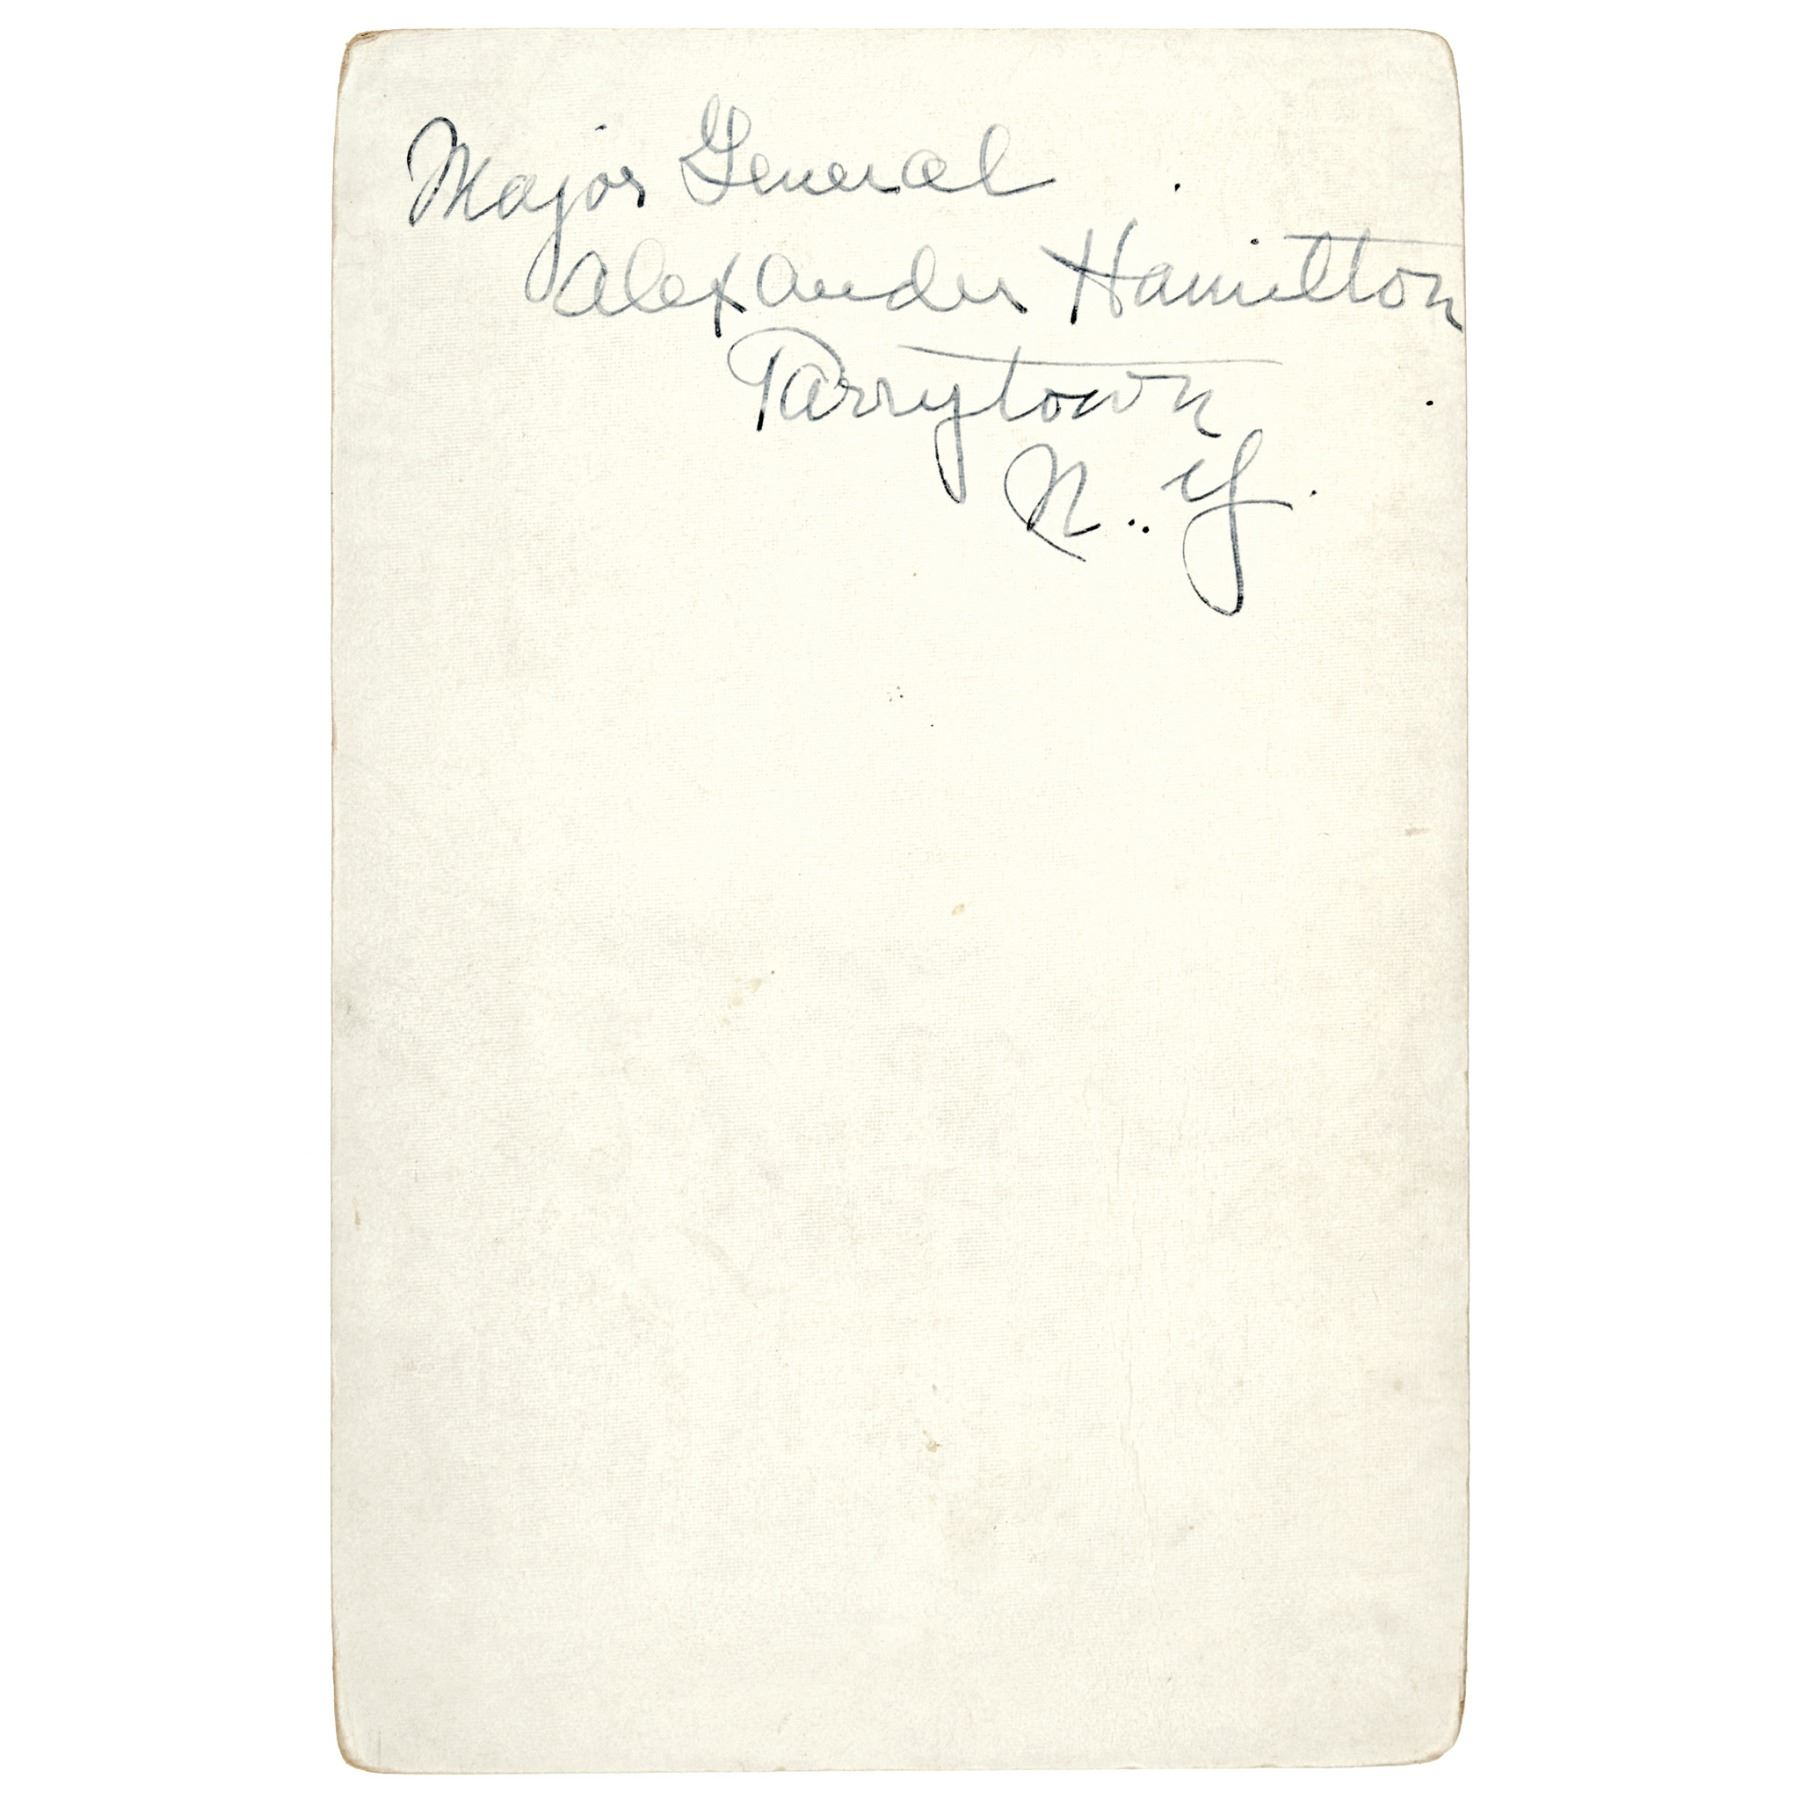 Major General
Alexander Hamilton
Tarrytown
N.. Y.